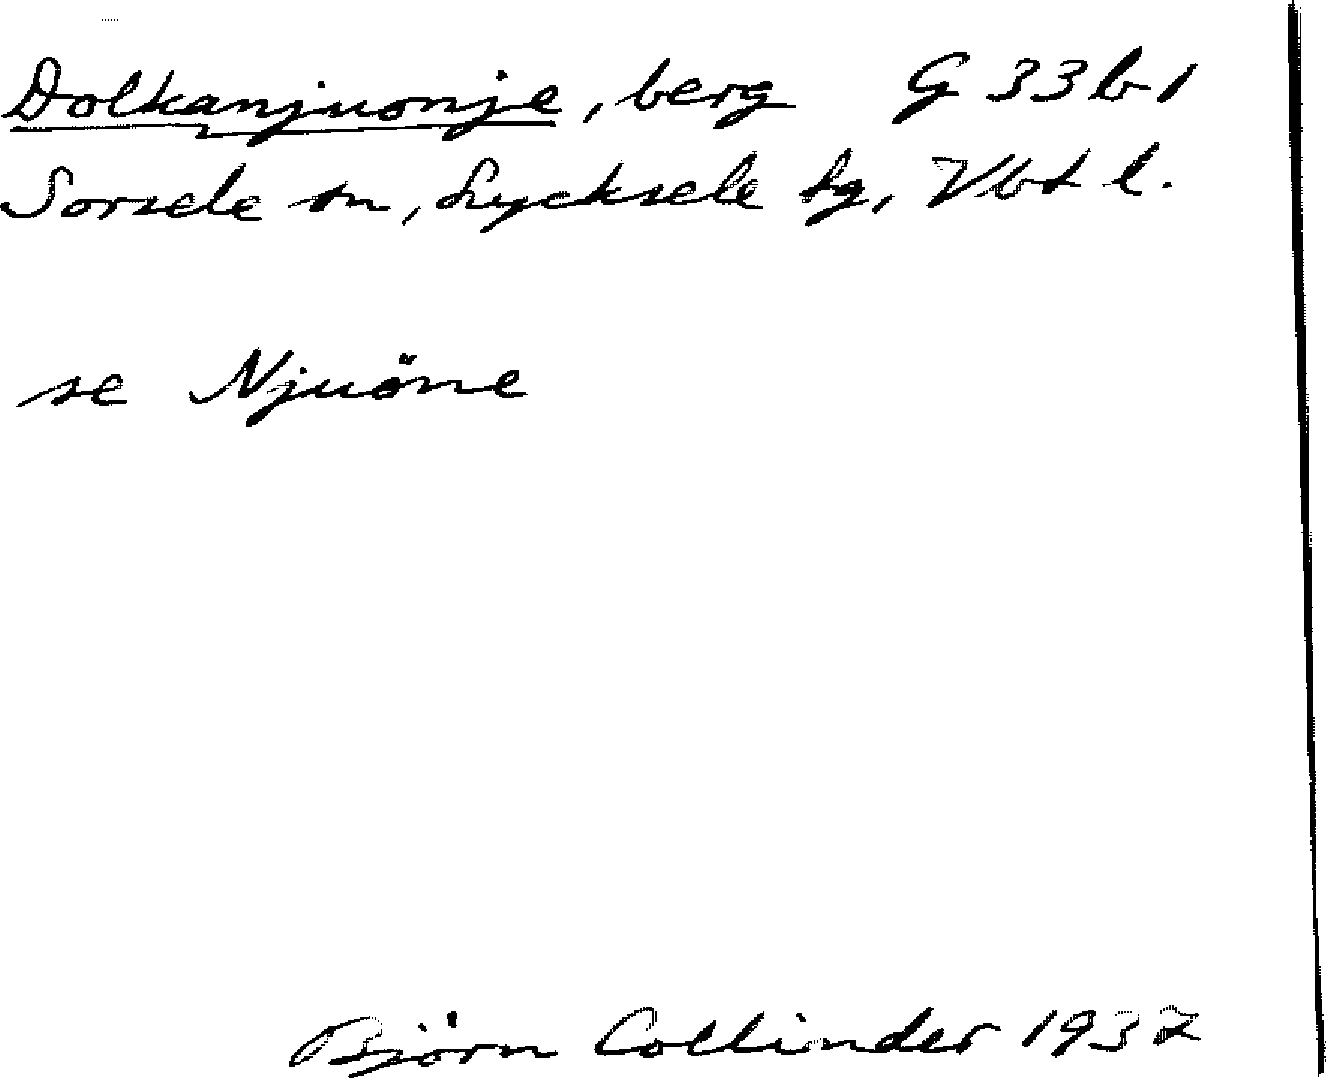 Dolkanjuonje, berg G 33 b 1
Sorsele sn, Lycksele lg, Vbt l.
se Njuöne
Björn Collinder 1937